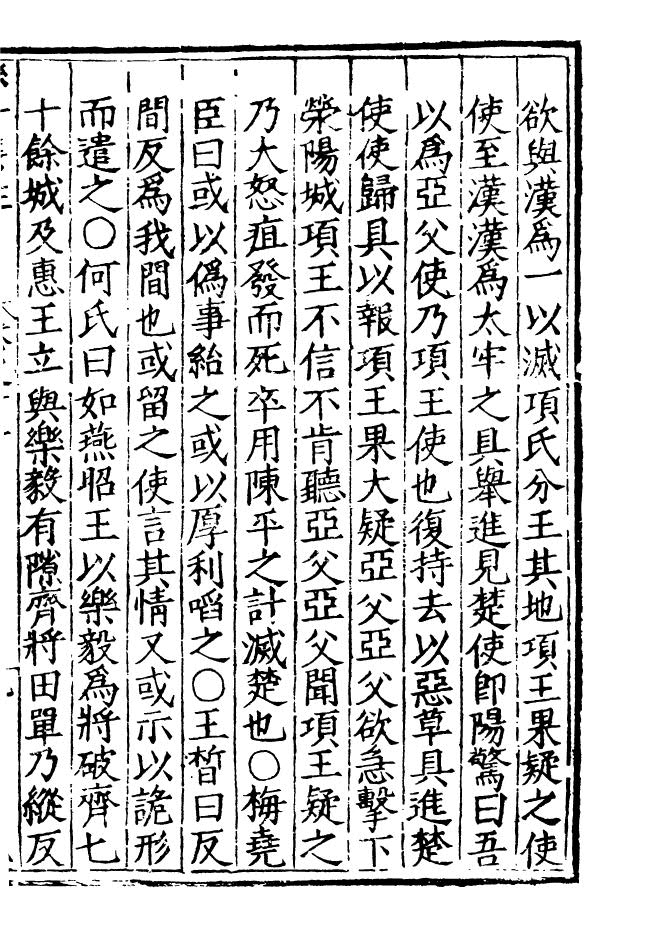 欲與漢爲一以滅項氏分王其地項王果疑之使
使至漢漢爲太牢之具舉進見楚使卽陽驚曰吾
以爲亞父使乃項王使也復持去以惡草具進楚
使使歸具以報項王果大疑亞父亞父欲急擊下
滎陽城項王不信不肯聽亞父亞父聞項王疑之
乃大怒疽發而死卒用陳平之計滅楚也○梅堯
臣曰或以僞事紿之或以厚利啗之○王晳曰反
間反爲我間也或留之使言其情又或示以詭形
而遣之○何氏曰如燕昭王以樂毅爲將破齊七
十餘城及惠王立與樂毅有隙齊將田單乃縱反